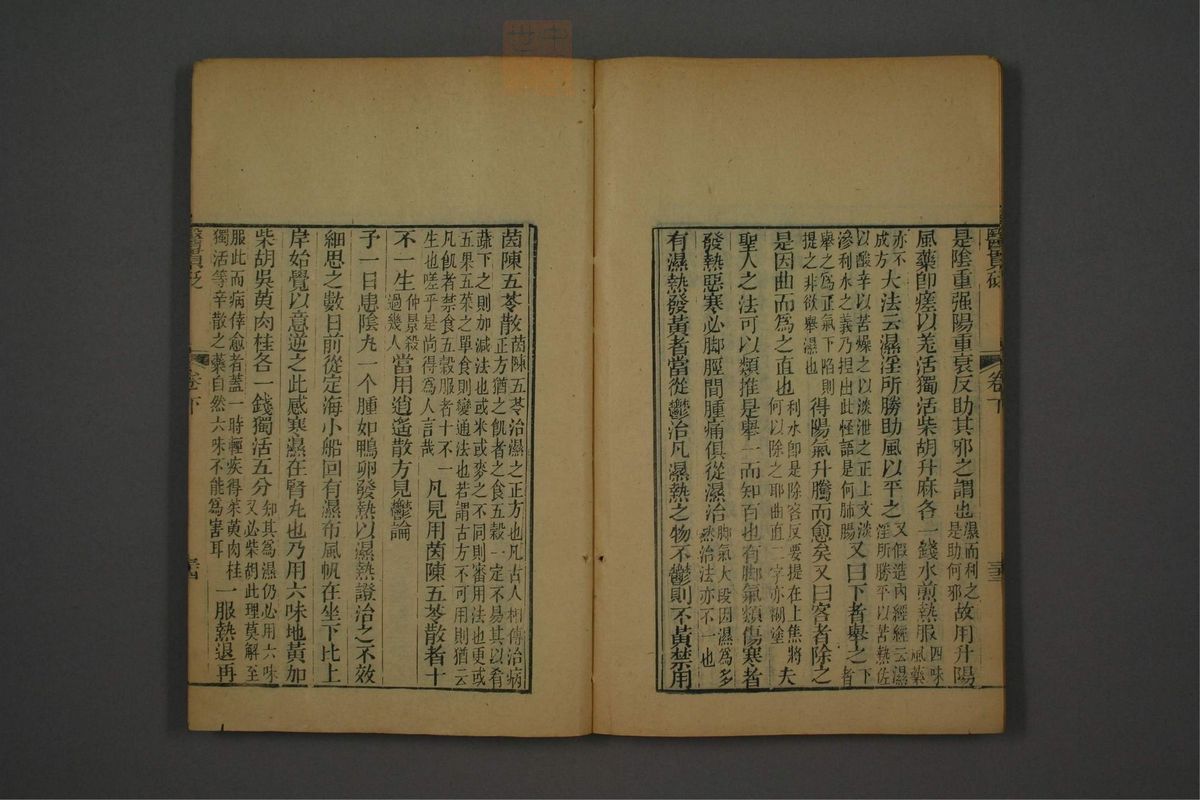 醫貫砭
卷下
三十三
是陰重强陽重衰反助其邪之謂也濕而利之是助何邪故用升陽
風藥卽瘥以羌活獨活柴胡升麻各一錢水煎熱服四味風藥
亦不成方大法云濕淫所勝助風以平之又假造內經經云濕淫所勝平以苦熱佐
以酸辛以苦燥之以淡泄之正上文淡滲利水之義乃揑出此怪語是何肺腸又曰下者舉之下者
舉之爲正氣下陷則提之非欲舉濕也得陽氣升騰而愈矣又曰客者除之
是因曲而爲之直也利水卽是除客反要提在上焦將何以除之耶曲直二字亦糊塗夫
聖人之法可以類推是舉一而知百也有脚氣類傷寒者
發熱惡寒必脚脛間腫痛俱從濕治脚氣大段因濕爲多然治法亦不一也
有濕熱發黃者當從鬱治凡濕熱之物不鬱則不黃禁用
茵陳五苓散茵陳五苓治濕之正方也凡古人相傳治病正方猶之飢者之食五穀一定不易其以肴
蔬下之則加減法也或米或麥之不同則審用法也更或五果五菜之單食則變通法也若謂古方不可用則猶云
凡飢者禁食五穀服者十不一生也嗟乎是尚得爲人言哉凡見用茵陳五苓散者十
不一生仲景殺過幾人當用逍遙散方見鬱論
予一日患陰丸一个腫如鴨卵發熱以濕熱證治之不效
細思之數日前從定海小船回有濕布風帆在坐下比上
岸始覺以意逆之此感寒濕在腎丸也乃用六味地黃加
柴胡吳萸肉桂各一錢獨活五分知其爲濕仍必用六味又必柴胡此理莫解至
服此而病倖愈者蓋一時輕疾得茱萸肉桂獨活等辛散之藥自然六味不能爲害耳一服熱退再
醫貫砭
卷下
三十四